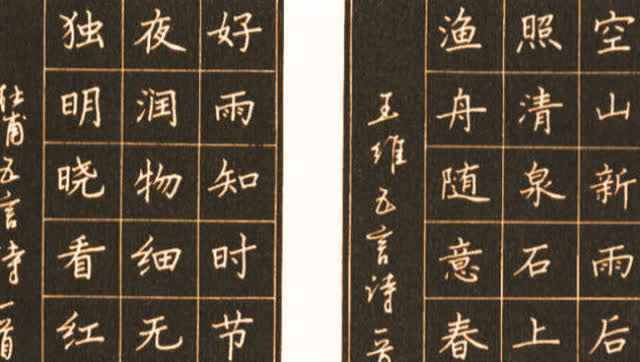 空山新雨后
照清泉石上
渔舟随意春
王维五言诗一首
好雨知时节
夜润物细无
独明晓看红
杜甫五言诗一首